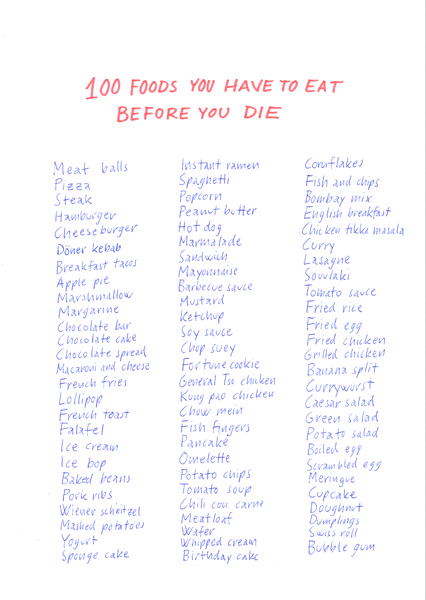 100 FOODS YOU HAVE TO EAT
BEFORE YOU DIE
Meat balls
Pizza
Steak
Hamburger
Cheeseburger
Döner kebab
Breakfast tacos
Apple pie
Marshmallow
Margarine
Chocolate bar
Chocolate cake
Chocolate spread
Macaroni and cheese
French fries
Lollipop
French toast
Falafel
Ice cream
Ice bop
Baked beans
Pork ribs
Wiener schnitzel
Mashed potatoes
Yogurt
Sponge cake
Instant ramen
Spaghetti
Popcorn
Peanut butter
Hot dog
Marmalade
Sandwich
Mayonnaise
Barbecue sauce
Mustard
Ketchup
Soy sauce
Chop suey
Fortune cookie
General Tso chicken
Kung pao chicken
Chow mein
Fish fingers
Pancake
Omelette
Potato chips
Tomato soup
Chili con carne
Meatloaf
Wafer
Whipped cream
Birthday cake
Cornflakes
Fish and chips
Bombay mix
English breakfast
Chicken tikka masala
Curry
Lasagne
Souvlaki
Tomato sauce
Fried rice
Fried egg
Fried chicken
Grilled chicken
Banana split
Currywurst
Caesar salad
Green salad
Potato salad
Boiled egg
Scrambled egg
Meringue
Cupcake
Doughnut
Dumplings
Swiss roll
Bubble gum